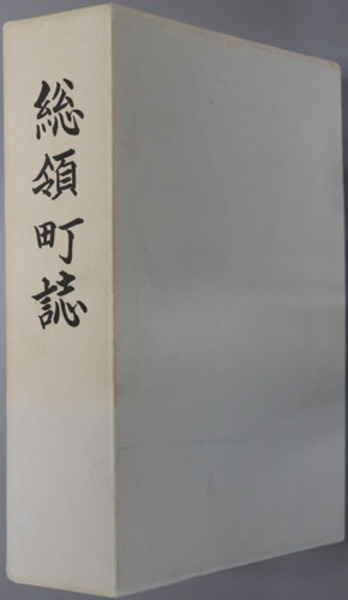 総領町誌